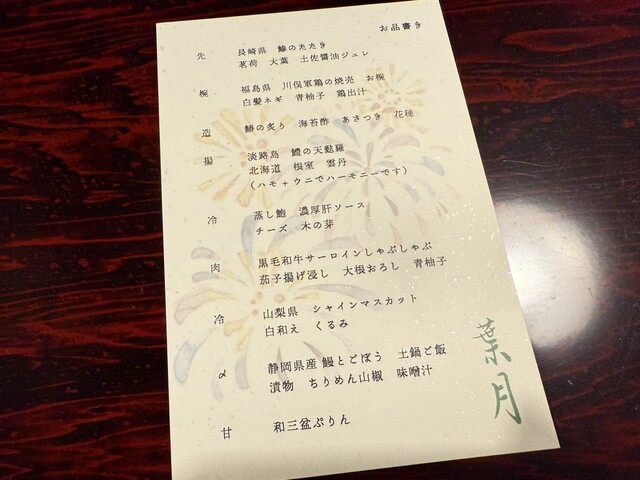 お品書き
先 長崎県 鰺のたたき
茗荷 大葉 土佐醤油ジュレ
椀 福島県 川俣軍鶏の焼売 お椀
白髪ネギ 青柚子 鶏出汁
造 鰆の炙り 海苔酢 あさつき 花穂
揚 淡路島 鱧の天麩羅
北海道 根室 雲丹
(ハモ+ウニでハーモニーです)
冷 蒸し鮑 濃厚肝ソース
チーズ 木の芽
肉 黒毛和牛サーロインしゃぶしゃぶ
茄子揚げ浸し 大根おろし 青柚子
冷 山梨県 シャインマスカット
白和え くるみ
〆 静岡県産 鰻とごぼう 土鍋ご飯
漬物 ちりめん山椒 味噌汁
甘 和三盆ぷりん
葉月